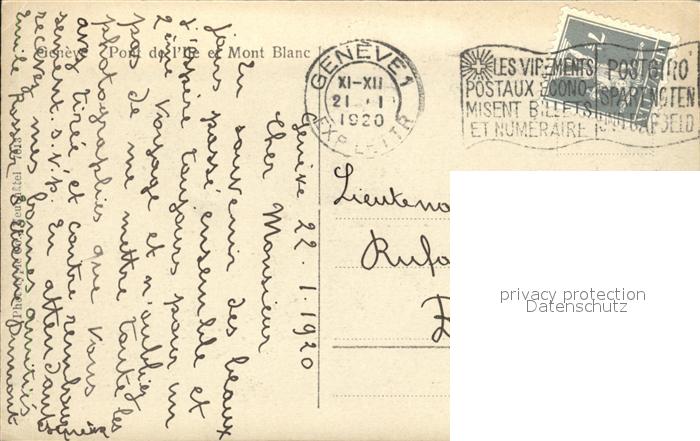 Genève Pont de l'Ile et Mont Blanc
GENÈVE 1
XI-XII
21 . I
1920
EXP. LETTR
LES VIREMENTS
POSTAUX ECONO-
MISENT BILLETS
ET NUMÉRAIRE
POSTGIRO
SPART NOTEN
UND BARGELD
Genève 22.1.1920
Cher Monsieur
En souvenir des beaux
jours passé ensemble et
j'espère toujours pour un
2ème voyage et n'oubliez
pas de me mettre toutes les
photographies que vous
avez tirée et contre rembour
sement. s.v.p. En attendant
recevez mes bonnes amitiés
Emile Rossier
Genève
Lieuteno
Rufa
privacy protection
Datenschutz